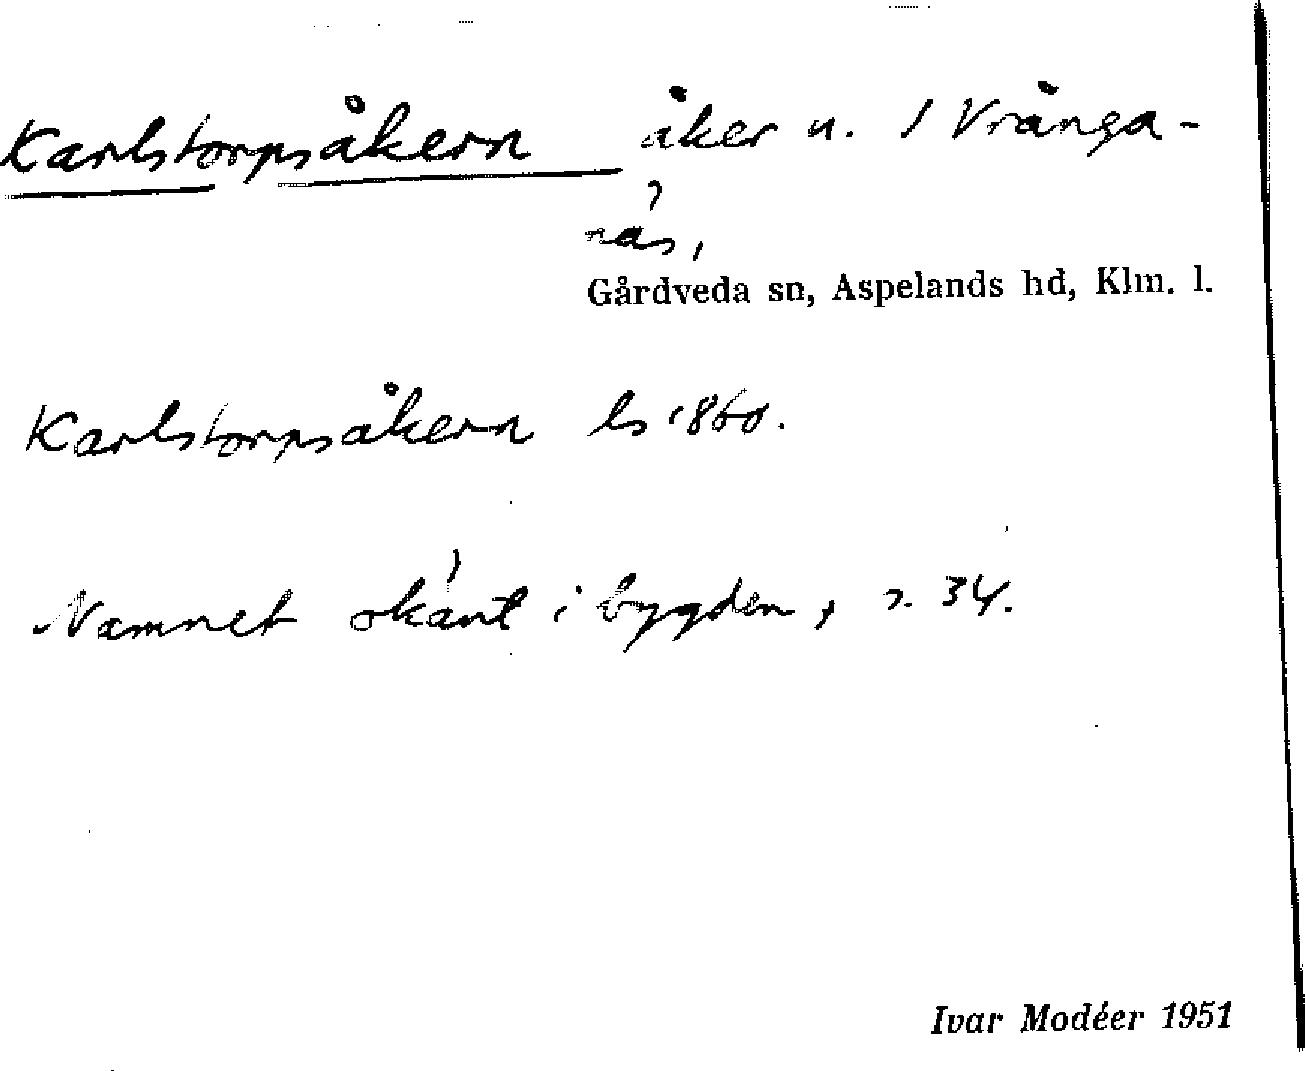 Karlstorpsåkern åker u. 1 Vrånga-
näs,
Gårdveda sn, Aspelands hd, Klm. l.
Karlstorpsåkern ls 1860.
Namnet okänt i bygden, s. 34.
Ivar Modéer 1951